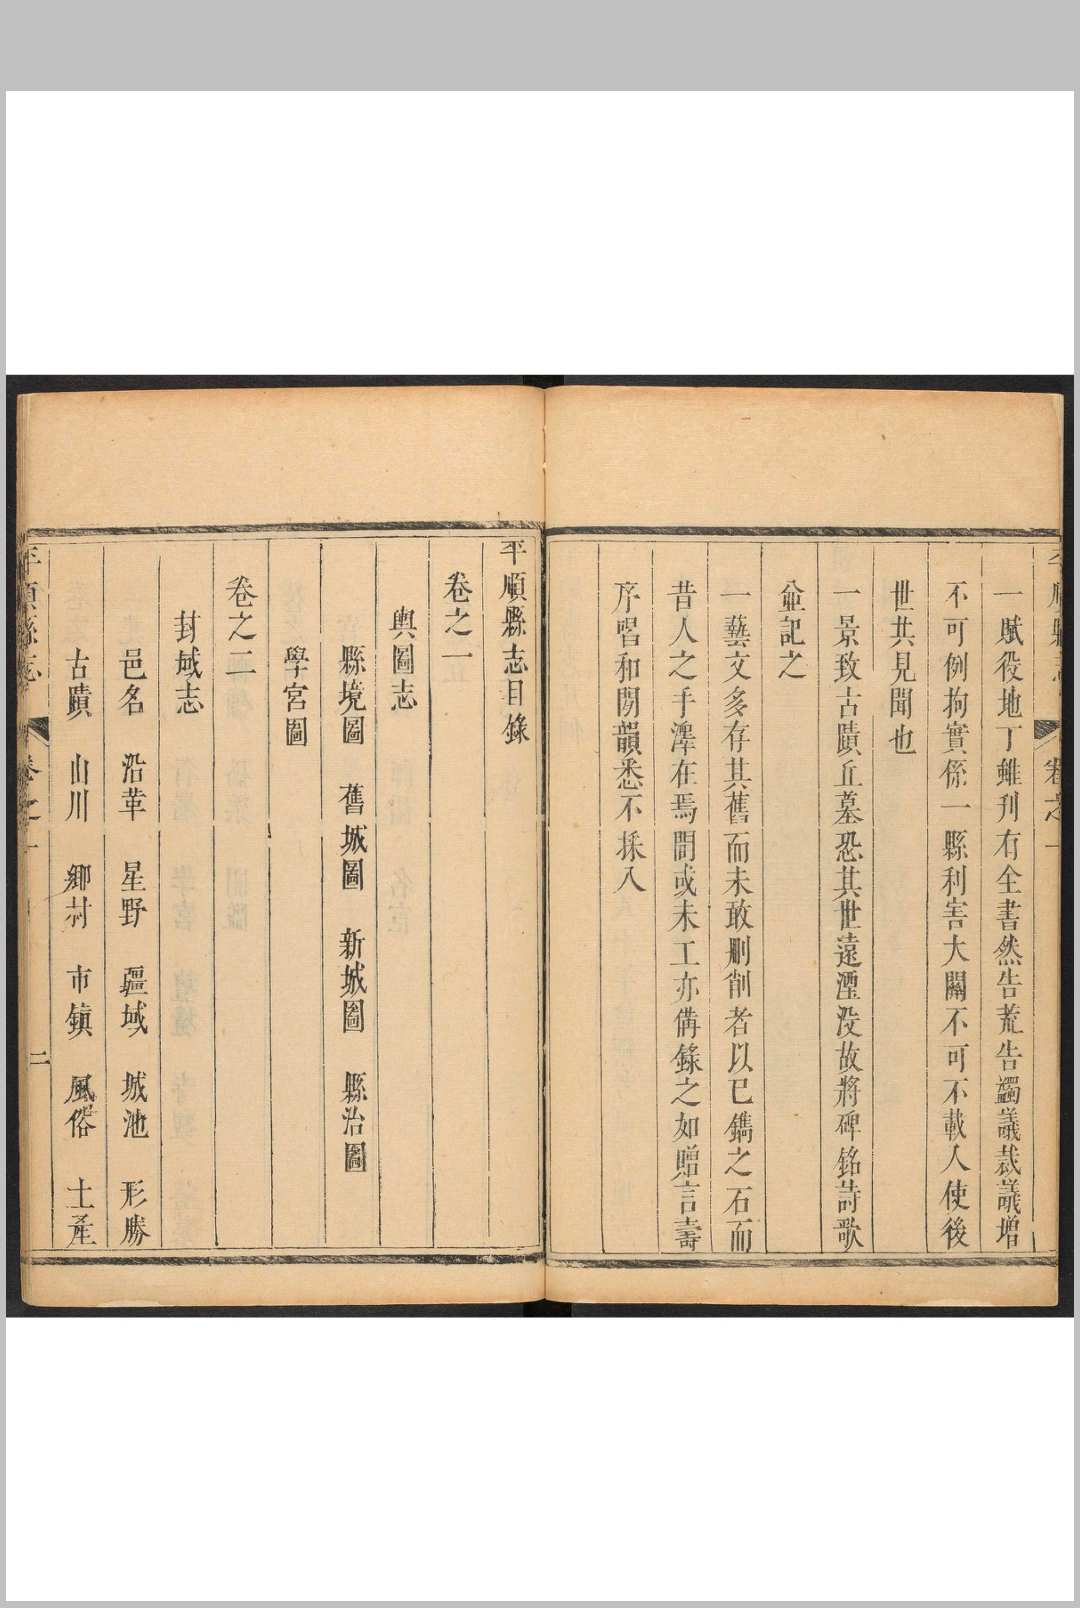 一賦役地丁雖刋有全書然告荒告蠲議裁議增
不可例拘實係一縣利害大關不可不載入使後
世共見聞也
一景致古蹟丘墓恐其世遠湮没故將碑銘詩歌
並記之
一藝文多存其舊而未敢刪削者以已鐫之石而
昔人之手澤在焉間或未工亦備錄之如贈言壽
序唱和閒韻悉不採入
平順縣志目錄
卷之一
輿圖志
縣境圖 舊城圖 新城圖 縣治圖
學宮圖
卷之二
封域志
邑名 沿革 星野 疆域 城池 形勝
古蹟 山川 鄉村 市鎮 風俗 土產
平順縣志 卷之一 二